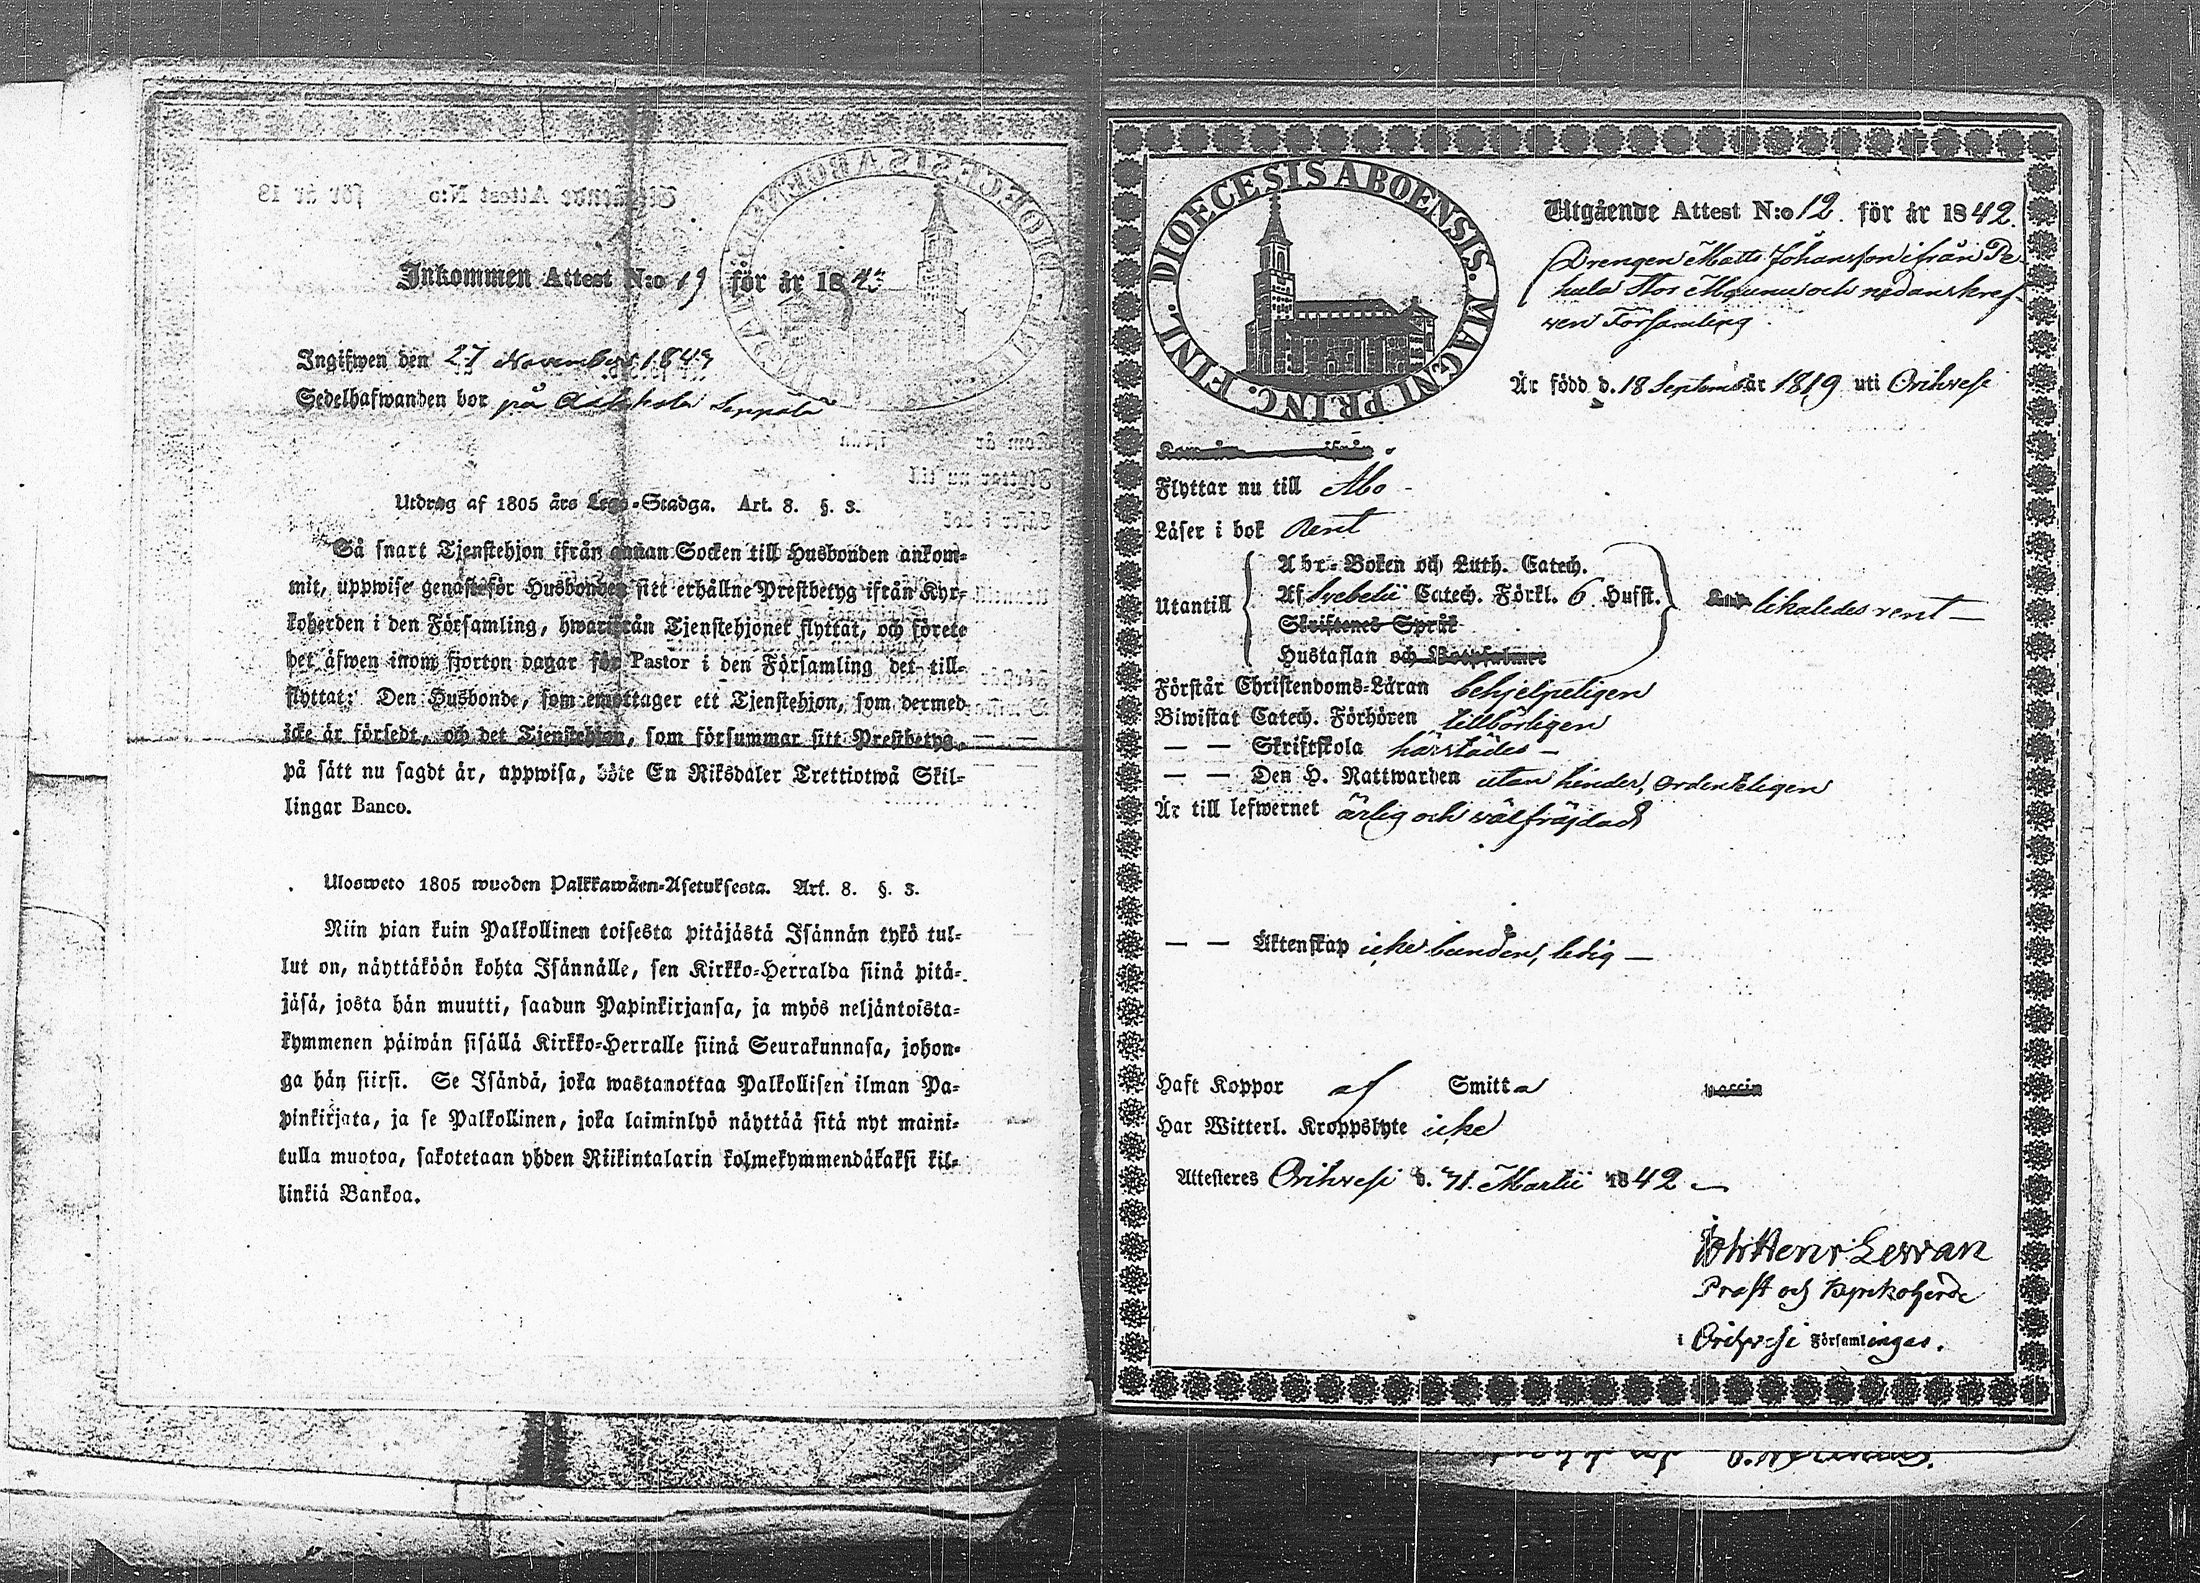 Inkommen Attest N:o 19 för år 1843
Ingifwen den 27 November 1843
Sedelhafwanden bor på Seppälä
Utdrag af 1805 års Lego-Stadga. Art. 8. §. 3.
Så snart Tjenstehjon ifrån annan Socken till Husbonden ankom-
mit, uppwise genast för Husbonden sitt erhållne Prestbetyg ifrån Kyr-
koherden i den Församling, hwarifrån Tjenstehjonet flyttat, och förete
det äfwen inom fjorton dagar för Pastor i den Församling det till-
flyttat: Den Husbonde, som emottager ett Tjenstehjon, som dermed
icke är försedt, och det Tjenstehjon, som försummar sitt Prestbetyg,
på sätt nu sagdt är, uppwisa, böte En Riksdaler Trettiotwå Skil-
lingar Banco.
Ulosweto 1805 wuoden Palkkawäen-Asetuksesta. Art. 8. §. 3.
Niin pian kuin Palkollinen toisesta pitäjästä Isännän tykö tul-
lut on, näyttäköön kohta Isännälle, sen Kirkko-Herralda siinä pitä-
jäsä, josta hän muutti, saadun Papinkirjansa, ja myös neljäntoista-
kymmenen päiwän sisällä Kirkko-Herralle siinä Seurakunnasa, johon-
ga hän siirsi. Se Isändä, joka wastanottaa Palkollisen ilman Pa-
pinkirjata, ja se Palkollinen, joka laiminlyö näyttää sitä nyt maini-
tulla muotoa, sakotetaan yhden Riikintalarin kolmekymmendäkaksi kil-
linkiä Bankoa.
DIOECESIS ABOENSIS. MAGNI PRINC. FINL.
Utgående Attest N:o 12. för år 1842.
Drengen Matts Johansson ifrån Pe-
hula Stor Maunu och nedanskref-
wen Församling.
Är född d. 18 Septemb år 1819 uti Orihvesi
Kom år ifrån
Flyttar nu till Åbo -
Läser i bok Rent
Utantill
Abc-Boken och Luth. Catech.
Af Svebelii Catech. Förkl. 6 Hufst.
Skriftenes Språk
Hustaflan och Botpsalmer
likaledes rent -
Förstår Christendoms-Läran behjelpeligen
Biwistat Catech. Förhören tillbörligen
— — Skriftskola härstädes -
— — Den H. Nattwarden utan hinder, ordenteligen
Är till lefwernet ärlig och välfräjdad
— — Äktenskap icke bunden, ledig -
Haft Koppor af Smitta vaccin
Har Witterl. Kroppslyte icke
Attesteres Orihvesi d. 31. Martii 1842 -
Joh Henr Lewan
Prost och Kyrkoherde
i Orihvesi Församlingar.